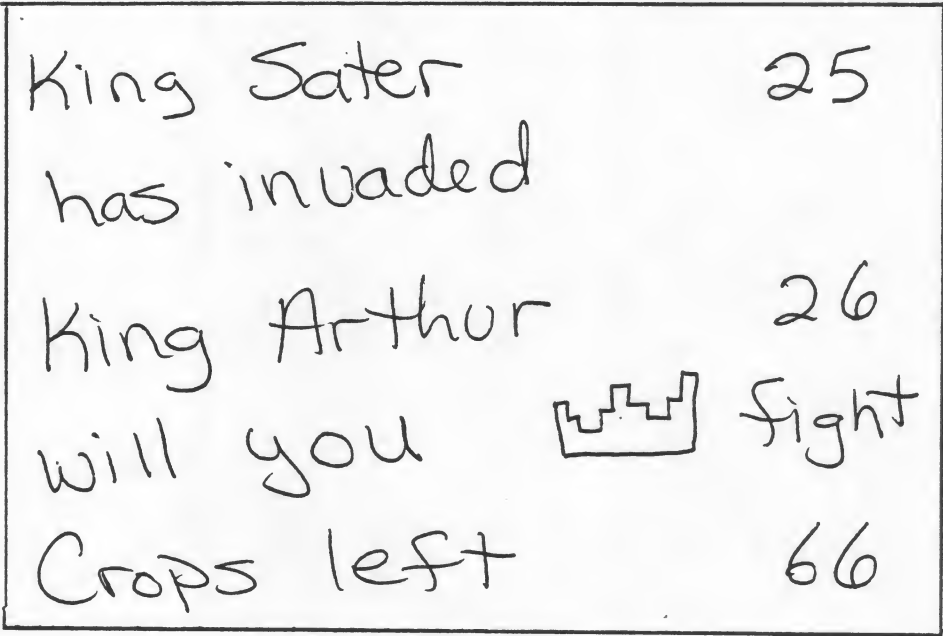 King Sater 25
has invaded
King Arthur 26
will you fight
Crops left 66